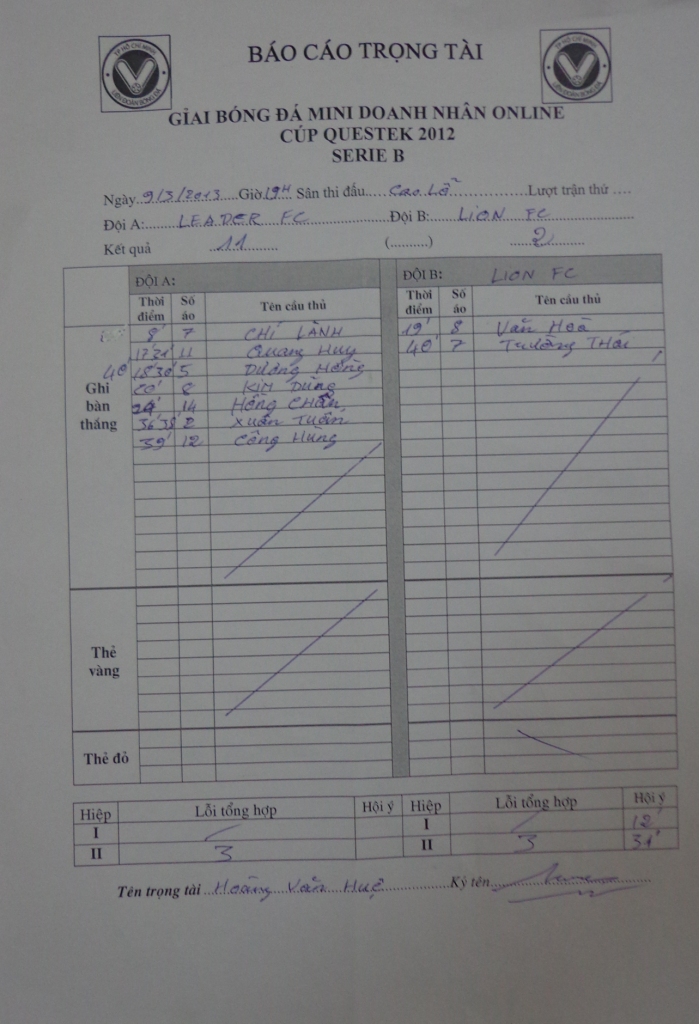 TP HỒ CHÍ MINH
LIÊN ĐOÀN BÓNG ĐÁ
BÁO CÁO TRỌNG TÀI
TP HỒ CHÍ MINH
LIÊN ĐOÀN BÓNG ĐÁ
GIẢI BÓNG ĐÁ MINI DOANH NHÂN ONLINE
CÚP QUESTEK 2012
SERIE B
Ngày 9/3/2013 Giờ 19H Sân thi đấu Cao Lỗ Lượt trận thứ ....
Đội A: LEADER FC Đội B: LION FC
Kết quả 11 (..........) 2
ĐỘI A: ĐỘI B: LION FC
Thời điểm Số áo Tên cầu thủ Thời điểm Số áo Tên cầu thủ
Ghi bàn thắng
8' 7 CHÍ LÀNH 19' 8 Văn Hoà
17' 21' 11 Quang Huy 40' 7 Trường Thái
40' 18' 30' 5 Dương Hồng
20' 8 KIM Dũng
14 Hồng Chấn
36' 38' 2 Xuân Tuấn
39' 12 Công Hùng
Thẻ vàng
Thẻ đỏ
Hiệp Lỗi tổng hợp Hội ý Hiệp Lỗi tổng hợp Hội ý
I I 12'
II 3 II 3 31'
Tên trọng tài Hoàng Văn Huệ Ký tên